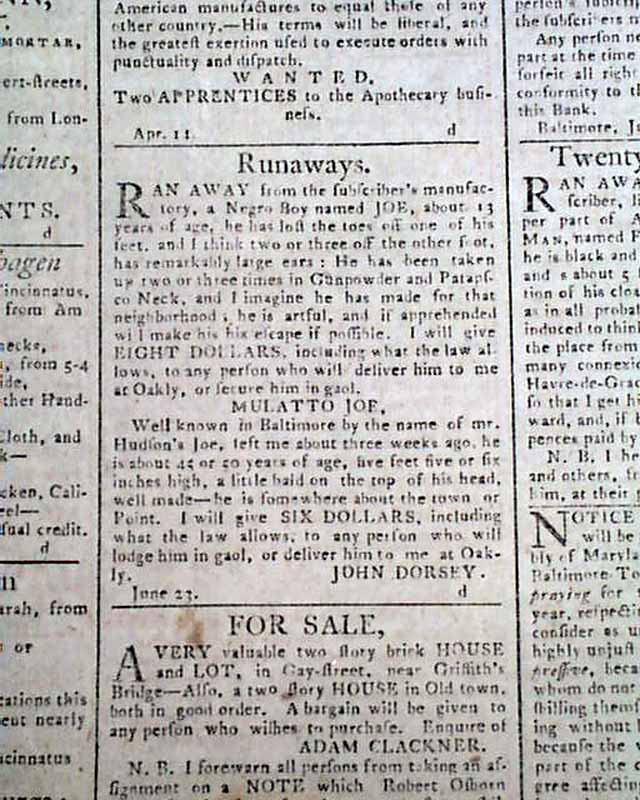 MORTAR,
ert-ſtreets,
from Lon-
dicines,
NTS.
d
bagen
incinnatus,
from Am
necks,
, from 5-4
ide,
ther Hand-
Cloth, and
k—
cken, Cali-
eel—
ſual credit.
d
arah, from
or
cations this
ent nearly
ncinnatus
American manufactures to equal thoſe of any
other country.—His terms will be liberal, and
the greateſt exertion uſed to execute orders with
punctuality and diſpatch.
WANTED,
Two APPRENTICES to the Apothecary buſi-
neſs.
Apr. 11 d
Runaways.
RAN AWAY from the ſubſcriber's manufac-
tory, a Negro Boy named JOE, about 13
years of age, he has loſt the toes off one of his
feet, and I think two or three off the other foot,
has remarkably large ears: He has been taken
up two or three times in Gunpowder and Patapſ-
co Neck, and I imagine he has made for that
neighborhood; he is artful, and if apprehended
will make his his eſcape if poſſible. I will give
EIGHT DOLLARS, including what the law al-
lows, to any perſon who will deliver him to me
at Oakly, or ſecure him in gaol.
MULATTO JOE,
Well known in Baltimore by the name of mr.
Hudſon's Joe, left me about three weeks ago, he
is about 45 or 50 years of age, five feet five or ſix
inches high, a little bald on the top of his head,
well made—he is ſomewhere about the town or
Point. I will give SIX DOLLARS, including
what the law allows, to any perſon who will
lodge him in gaol, or deliver him to me at Oak-
ly. JOHN DORSEY.
June 23. d
FOR SALE,
A VERY valuable two ſtory brick HOUSE
and LOT, in Gay-ſtreet, near Griffith's
Bridge—Alſo, a two ſtory HOUSE in Old town,
both in good order. A bargain will be given to
any perſon who wiſhes to purchaſe. Enquire of
ADAM CLACKNER.
N. B. I forewarn all perſons from taking an aſ-
ſignment on a NOTE which Robert Oſborn
the ſubſcribers
Any perſon ne
part at the time
forfeit all right
conformity to th
this Bank.
Baltimore, J
Twenty
RAN AWA
ſcriber, li
per part of A
MAN, named P
he is black and
and s about 5
tion of his clo
as in all probab
induced to think
the place from
many connexio
Havre-de-Gra
ſo that I get hi
ward, and, if b
pences paid by
N. B. I he
and others, fr
him, at their
NOTICE
will be
bly of Maryla
Baltimore-To
praying for
year, reſpectin
conſider as u
highly unjuſt
preſſive, beca
whom do not
ſhilling themſ
ing without
becauſe the w
part of the c
gree affectin